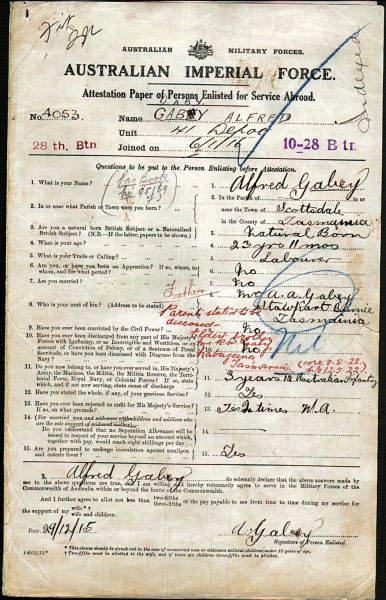 Fit
AUSTRALIAN MILITARY FORCES.
AUSTRALIAN IMPERIAL FORCE.
Indexed
Attestation Paper of Persons Enlisted for Service Abroad.
GABY
No. 4053 Name GABEY ALFRED
Unit 41 Depot
28 th. Btn Joined on 6/11/15 10-28 Btn
Questions to be put to the Person Enlisting before Attestation.
1. What is your Name? 1. Alfred Gabey
2. In or near what Parish or Town were you born? 2. In the Parish of
near the Town of Scottsdale
in the County of Tasmania
3. Are you a natural born British Subject or a Naturalised British Subject? (N.B.—If the latter, papers to be shown.) 3. Natural Born
4. What is your age? 4. 23 yrs 11 mos
5. What is your Trade or Calling? 5. Labourer
6. Are you, or have you been an Apprentice? If so, where, to whom, and for what period? 6. No
7. Are you married? 7. No
Father
8. Who is your next of kin? (Address to be stated) 8. Mr A. A. Gabey
Tasmania
Parents stated to be deceased
Eldest brother
9. Have you ever been convicted by the Civil Power? 9. No
10. Have you ever been discharged from any part of His Majesty's Forces, with Ignominy, or as Incorrigible and Worthless, or on account of Conviction of Felony, or a Sentence of Penal Servitude, or have you been dismissed with Disgrace from the Navy? 10. No
Nil
Tasmania
11. Do you now belong to, or have you ever served in, His Majesty's Army, the Marines, the Militia, the Militia Reserve, the Territorial Force, Royal Navy, or Colonial Forces? If so, state which, and if not now serving, state cause of discharge 11. 3 years 12 Australian Infantry
12. Have you stated the whole, if any, of your previous Service? 12. Yes
13. Have you ever been rejected as unfit for His Majesty's Service? If so, on what grounds? 13. Yes 2 times W.A.
14. (For married men and widowers with children and soldiers who are the sole support of widowed mother)
Do you understand that no Separation Allowance will be issued in respect of your service beyond an amount which, together with pay, would reach eight shillings per day?
15. Are you prepared to undergo inoculation against smallpox and enteric fever? 15. Yes
I, Alfred Gabey do solemnly declare that the above answers made by me to the above questions are true, and I am willing and hereby voluntarily agree to serve in the Military Forces of the Commonwealth of Australia within or beyond the limits of the Commonwealth.
And I further agree to allot not less than two-fifths three-fifths of the pay payable to me from time to time during my service for the support of my wife.* wife and children.
Date 29/12/15 A. Gabey
Signature of Person Enlisted.
* This clause should be struck out in the case of unmarried men or widowers without children under 18 years of age.
† Two-fifths must be allotted to the wife, and if there are children three-fifths must be allotted.